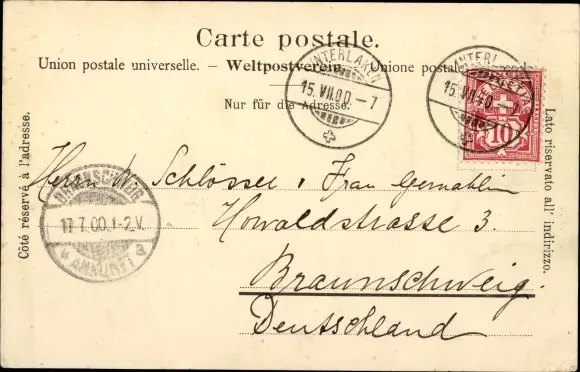 Carte postale.
Union postale universelle. – Weltpostverein. – Unione postale
Nur für die Adresse.
Côté réservé à l'adresse.
Lato riservato all' indirizzo.
INTERLAKEN
15. VII. 00 – 7
INTERLAKEN
15. VII. 00
HELVETIA
10
BRAUNSCHWEIG
17.7.00.1-2.V.
* ANKUNFT 3
Herrn W. Schlösser, Frau Gemahlin
Howaldtstrasse 3.
Braunschweig.
Deutschland